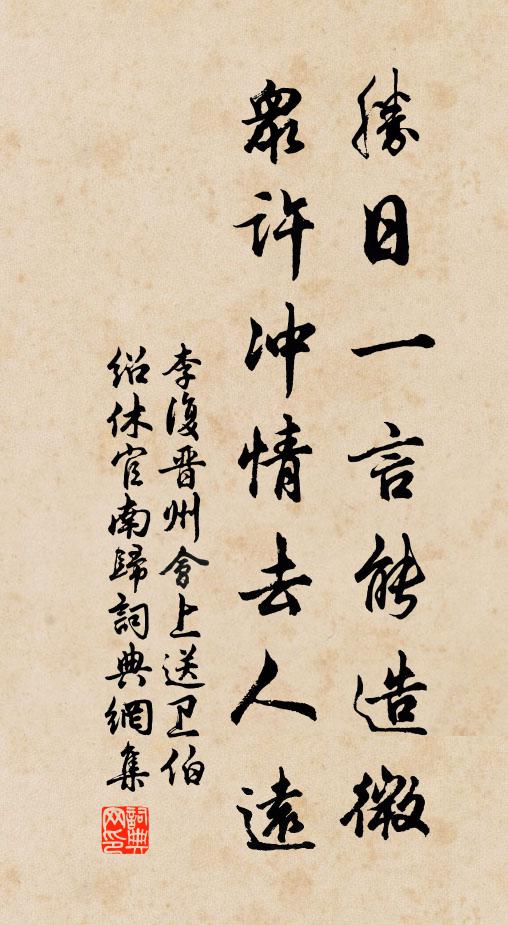 勝日一言能造微
衆許冲情去人遠
李復晋州會上送卫伯
紹休官南歸詞典網集
詞典网印